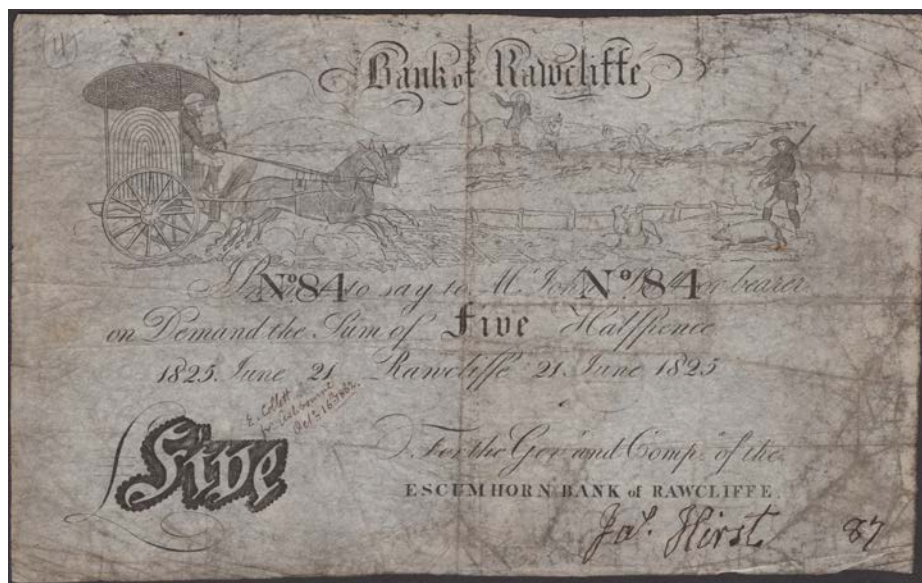 (11)
Bank of Rawcliffe
No 84 to say to Mr No 84 or bearer
on Demand the Sum of Five Halfpence
1825 June 21 Rawcliffe 21 June 1825
E. Collett
Five
For the Govr and Compy of the
ESCUMHORN BANK of RAWCLIFFE.
Jas. Hirst 87